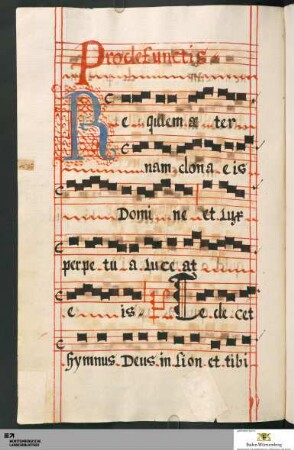 Pro defunctis
Re quiem æ ter
nam dona eis
Domi ne et lux
perpe tu a luce at
e is Te de cet
hymnus Deus in Sion et tibi
WÜRTTEMBERGISCHE
LANDESBIBLIOTHEK
Baden-Württemberg